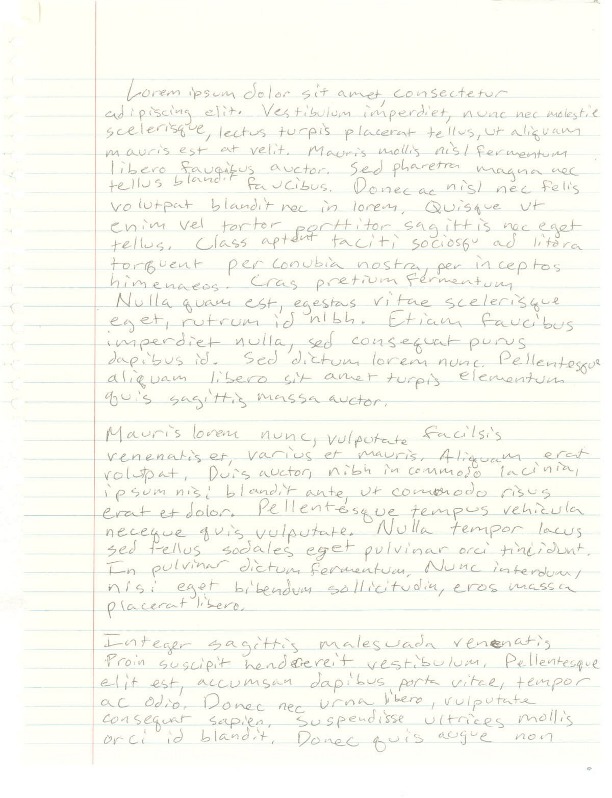 Lorem ipsum dolor sit amet, consectetur
adipiscing elit. Vestibulum imperdiet, nunc nec molestie
scelerisque, lectus turpis placerat tellus, ut aliquam
mauris est at velit. Mauris mollis nisl fermentum
libero faucibus auctor. Sed pharetra magna nec
tellus blandit faucibus. Donec ac nisl nec felis
volutpat blandit nec in lorem. Quisque ut
enim vel tortor porttitor sagittis nec eget
tellus. Class aptent taciti sociosqu ad litora
torquent per conubia nostra, per inceptos
himenaeos. Cras pretium fermentum
Nulla quam est, egestas vitae scelerisque
eget, rutrum id nibh. Etiam faucibus
imperdiet nulla, sed consequat purus
dapibus id. Sed dictum lorem nunc. Pellentesque
aliquam libero sit amet turpis elementum
quis sagittis massa auctor.
Mauris lorem nunc, vulputate facilsis
venenatis et, varius et mauris. Aliquam erat
volutpat. Duis auctor, nibh in commodo lacinia,
ipsum nisi blandit ante, ut commodo risus
erat et dolor. Pellentesque tempus vehicula
neceque quis vulputate. Nulla tempor lacus
sed tellus sodales eget pulvinar orci tincidunt.
In pulvinar dictum fermentum. Nunc interdum,
nisi eget bibendum sollicitudin, eros massa
placerat libero.
Integer sagittis malesuada venenatis
Proin suscipit hendrereit vestibulum. Pellentesque
elit est, accumsan dapibus porta vitae, tempor
ac odio. Donec nec urna libero, vulputate
consequat sapien. Suspendisse ultrices mollis
orci id blandit. Donec quis augue non